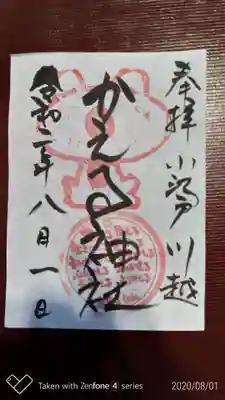 奉拝 小江戸川越
かえる神社
令和二年八月一日
Taken with Zenfone 4 series
2020/08/01